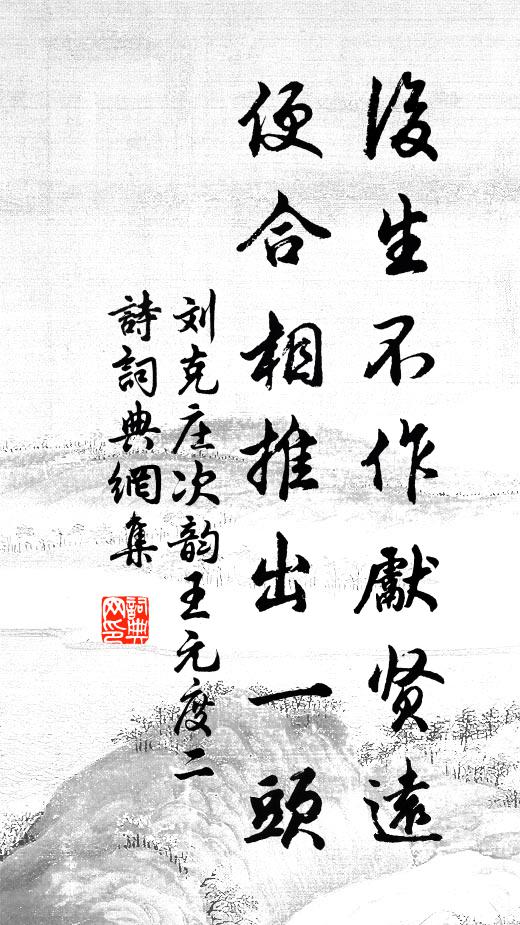 後生不作獻贤遠
便合相推出一頭
刘克庄次韵王元度二
詩詞典網集
詞典